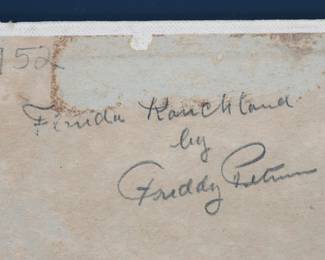 152
Florida Ranchland
by
Freddy